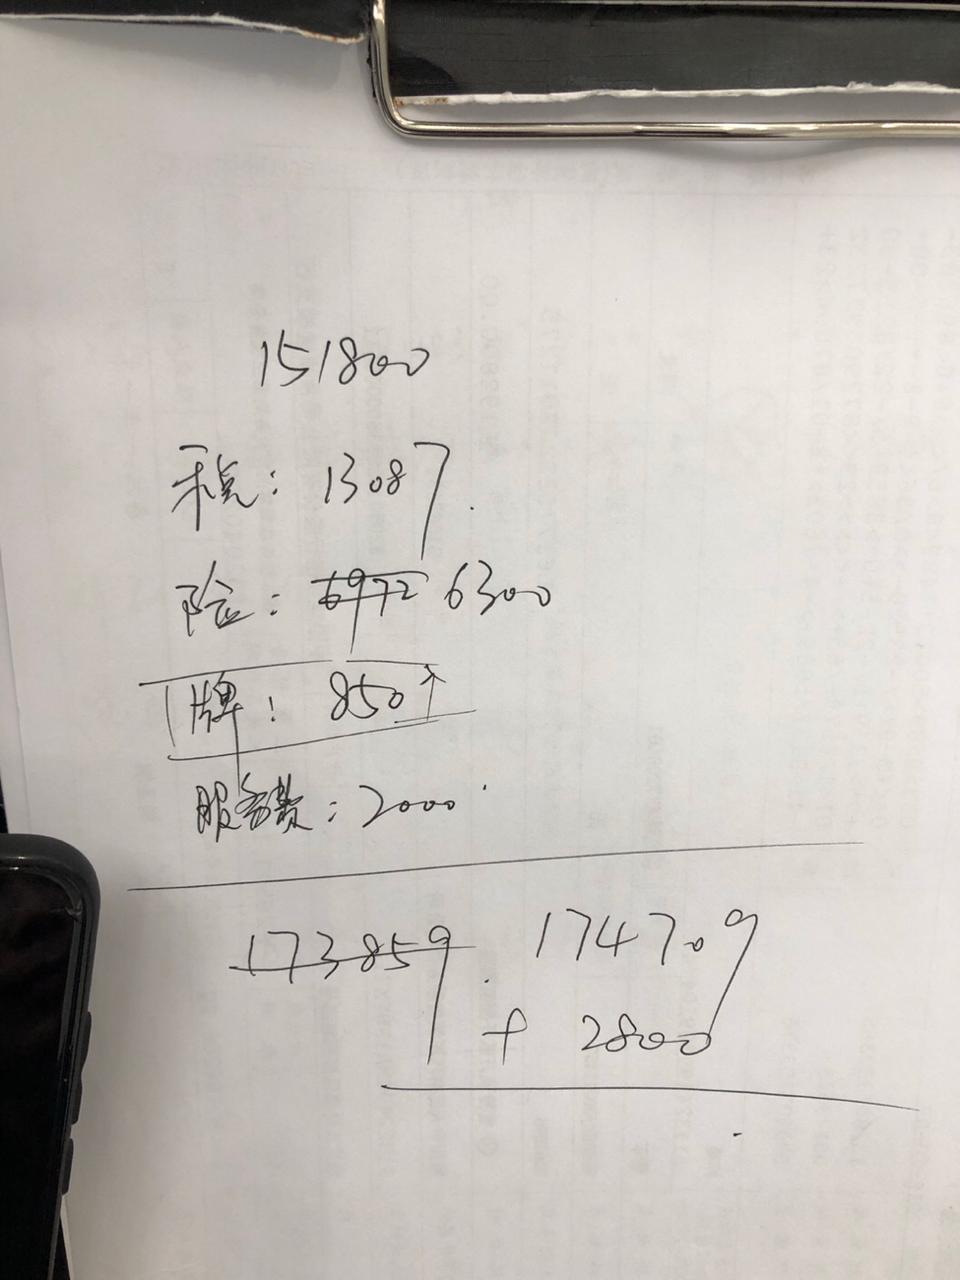 151800
税：13087.
险：6972 6300
牌：850
服务费：2000
173859. 174709
+ 2800